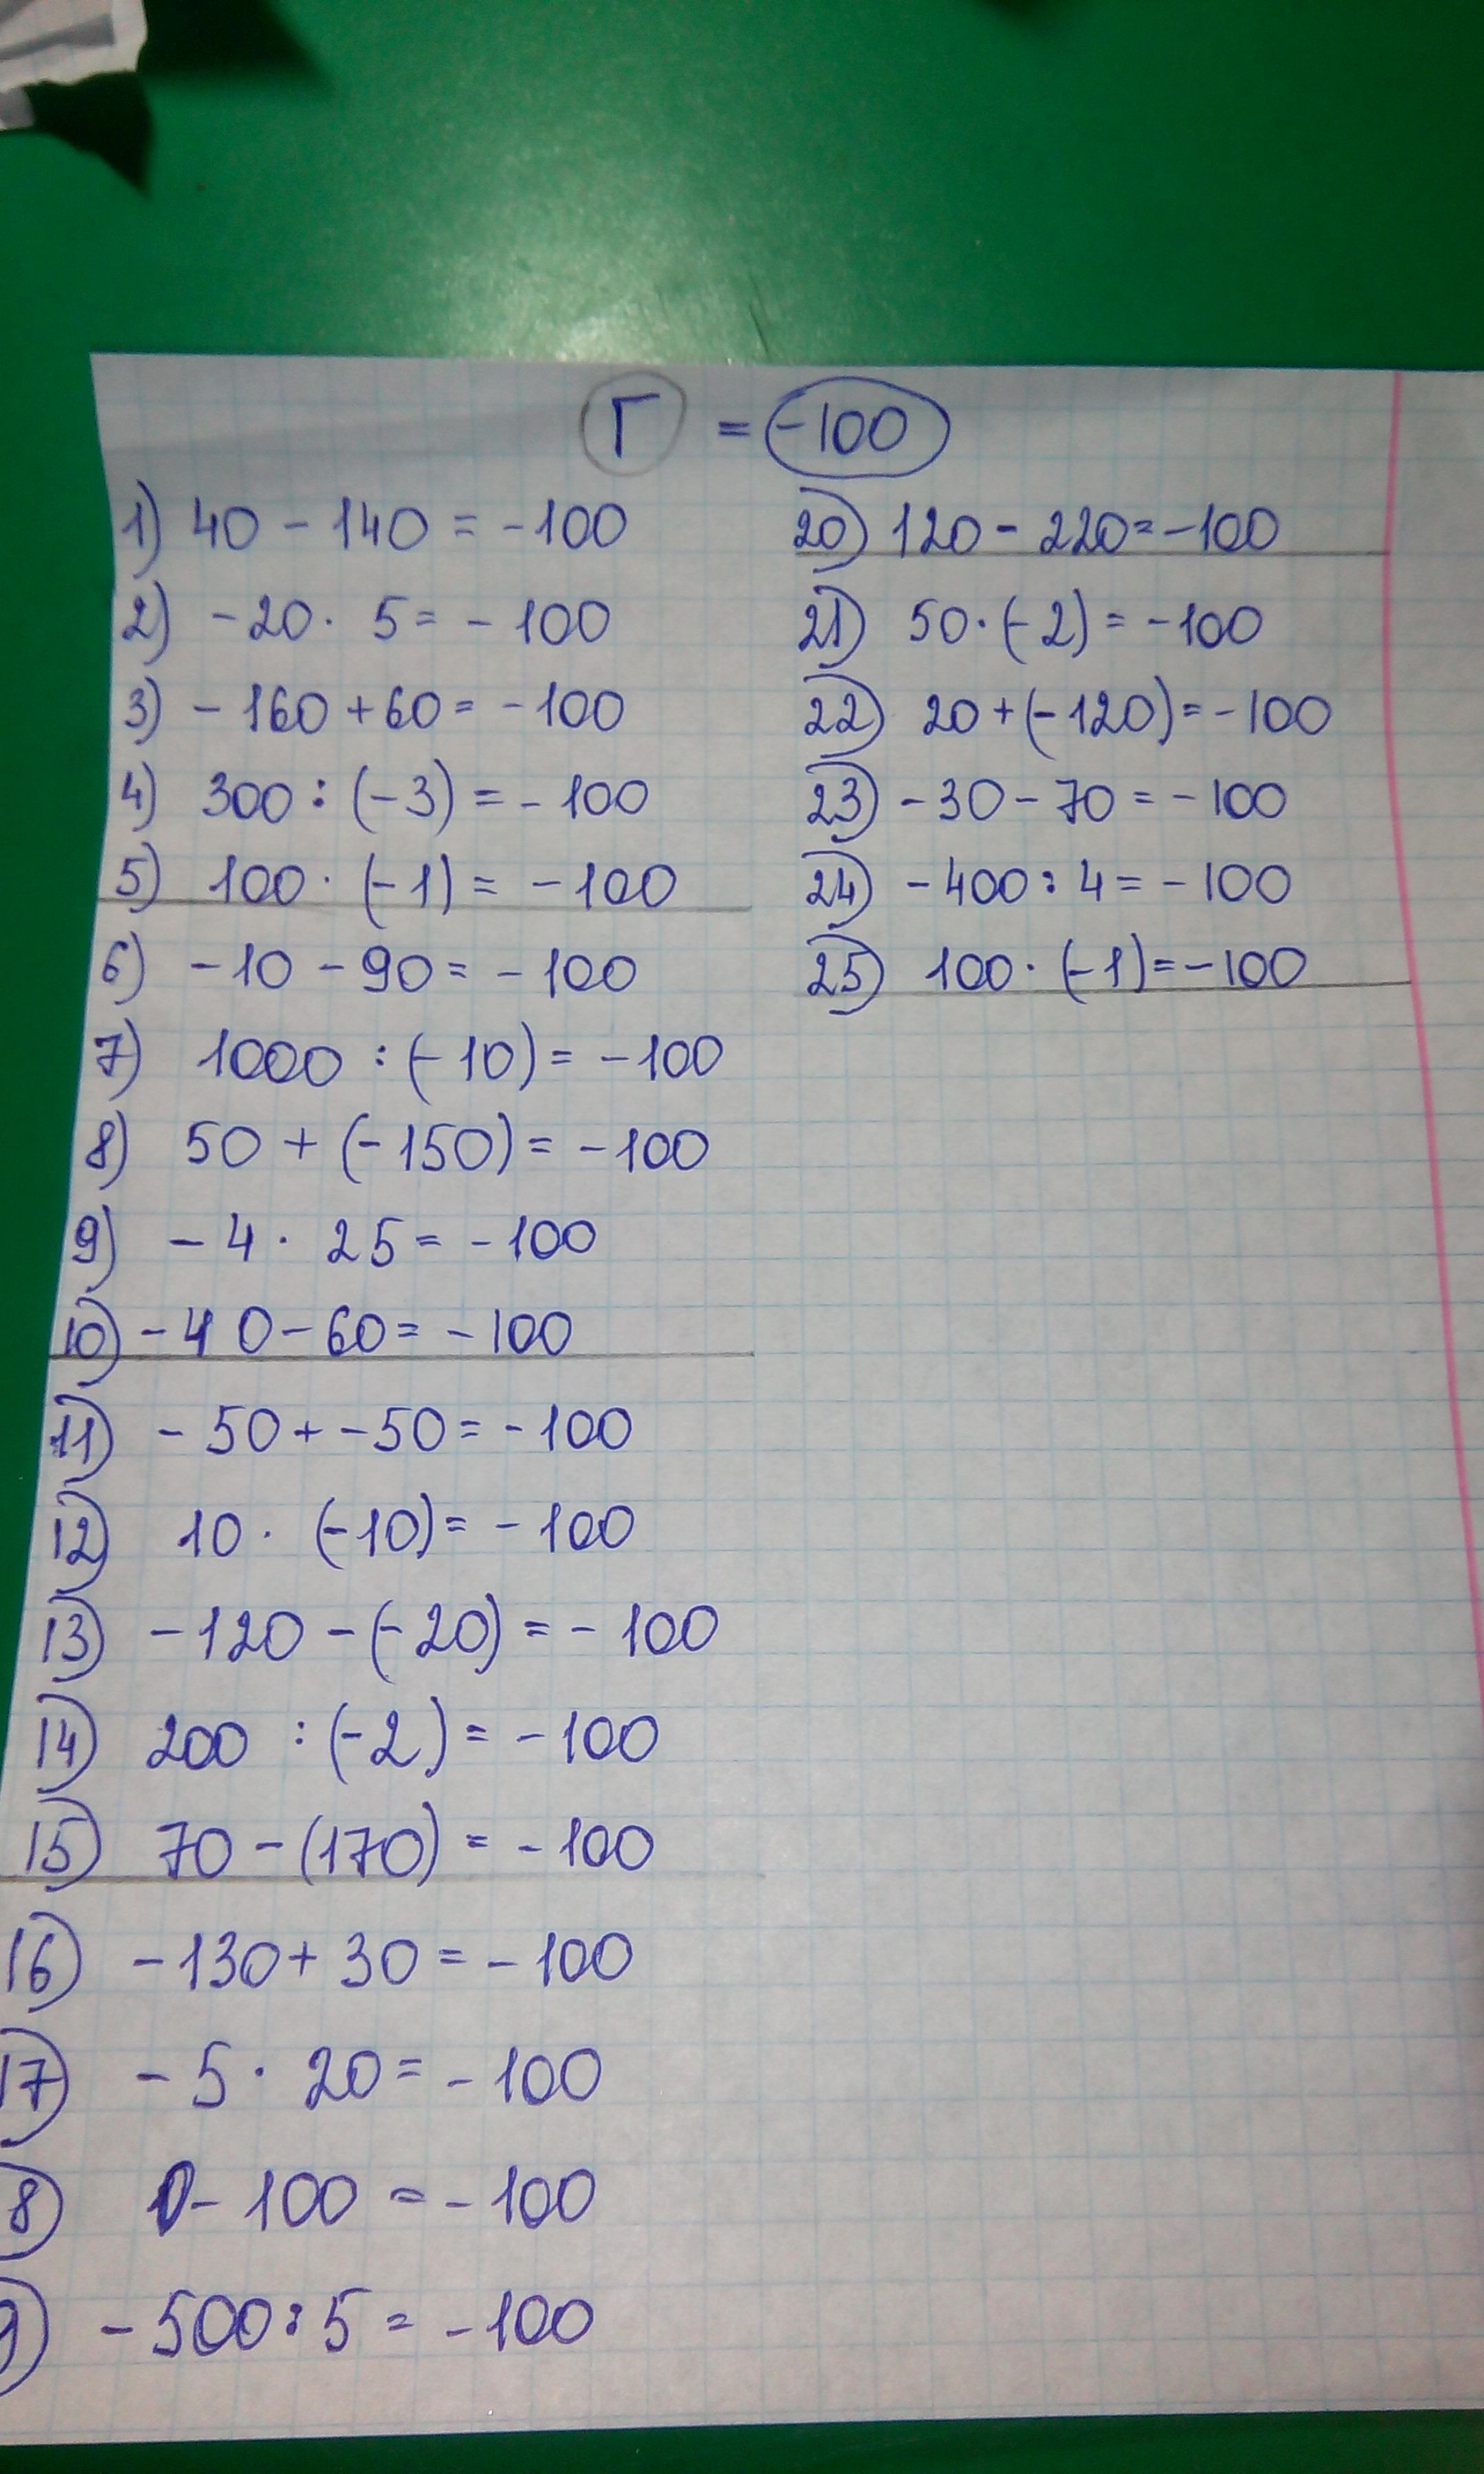 Г = -100
1) 40 - 140 = -100
2) -20 · 5 = -100
3) -160 + 60 = -100
4) 300 : (-3) = -100
5) 100 · (-1) = -100
6) -10 - 90 = -100
7) 1000 : (-10) = -100
8) 50 + (-150) = -100
9) -4 · 25 = -100
10) -40 - 60 = -100
11) -50 + -50 = -100
12) 10 · (-10) = -100
13) -120 - (-20) = -100
14) 200 : (-2) = -100
15) 70 - (170) = -100
16) -130 + 30 = -100
17) -5 · 20 = -100
8) 0 - 100 = -100
9) -500 : 5 = -100
20) 120 - 220 = -100
21) 50 · (-2) = -100
22) 20 + (-120) = -100
23) -30 - 70 = -100
24) -400 : 4 = -100
25) 100 · (-1) = -100